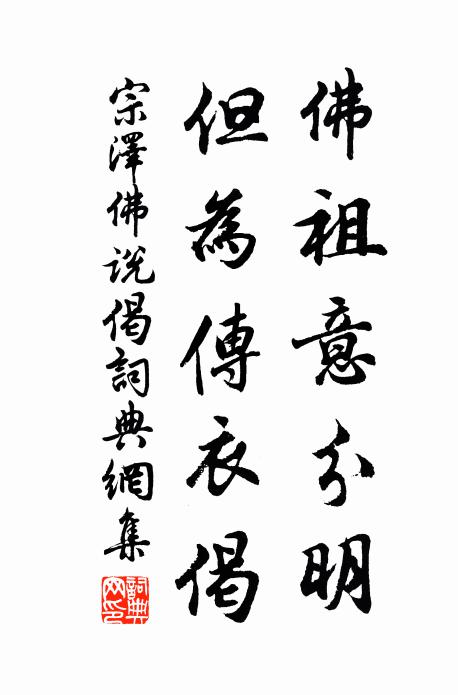 佛祖意分明
但為傳衣偈
宗澤佛説偈詞典網集
詞典
网印